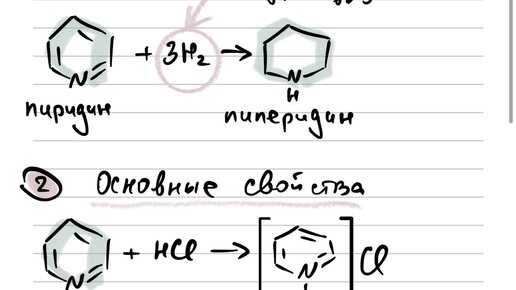 + 3H₂ →
N
N
H
пиридин
пиперидин
2 Основные свойства
+ HCl → [ ] Cl
N
N